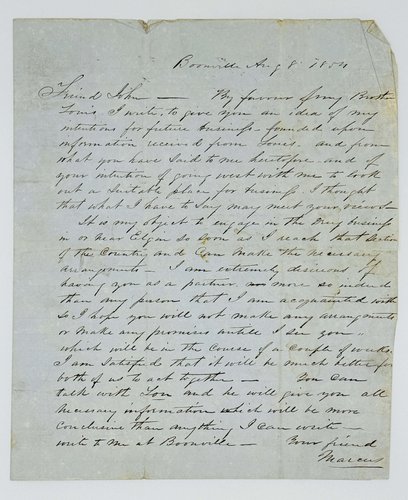 Boonville Aug 8 1854
Friend John — By favour of my Brother
Louis I write, to give you an idea of my
intentions for future business - founded upon
information received from Louis - and from
what you have Said to me heretofore and of
your intention of going west with me to look
out a Suitable place for business I thought
that what I have to Say may meet your
It is my object to engage in the Drug business
in or near Elgin so soon as I reach that Section
of the Country and Can Make the necessary
arrangements — I am extremely desirous of
having you as a partner, more so indeed
than any person that I am acquainted with
So I hope you will not make any arrangements
or make any promises untill I see you "
which will be in the course of a couple of weeks.
I am Satisfied that it will be much better for
both of us to act together — You can
talk with Lou and he will give you all
necessary information which will be more
conclusive than anything I can write —
write to me at Boonville — Your friend
Marcus